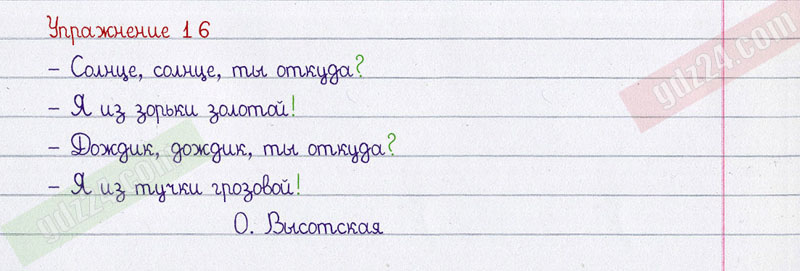 Упражнение 16
– Солнце, солнце, ты откуда?
– Я из зорьки золотой!
– Дождик, дождик, ты откуда?
– Я из тучки грозовой!
О. Высотская
gdz24.com
gdz24.com